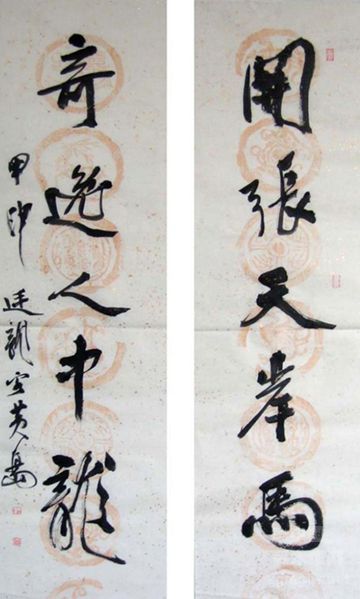 開張天岸馬
奇逸人中龍
甲申 廷龍 黄島